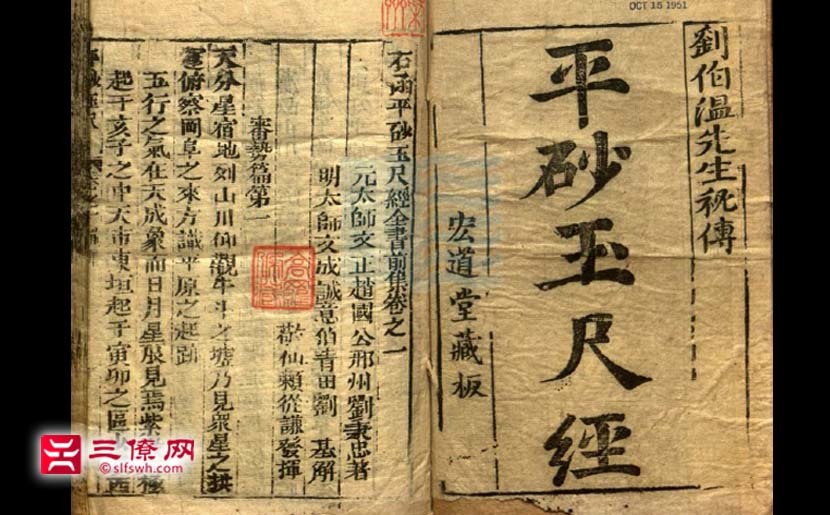 OCT 15 1951
劉伯温先生秘傳
平砂玉尺經
宏道堂藏板
石函平砂玉尺經全書前集卷之一
元太師文正趙國公邢州劉秉忠著
明太師文成誠意伯青田劉 基解
敬仙賴從謙發揮
審勢篇第一
天分星宿地列山川仰觀牛斗之墟乃見衆星之拱
運俯察岡阜之來方識平原之起跡
五行之氣在天成象而日月星辰見焉紫
起于亥子之中天市東垣起于寅卯之區
三僚网
slfswh.com